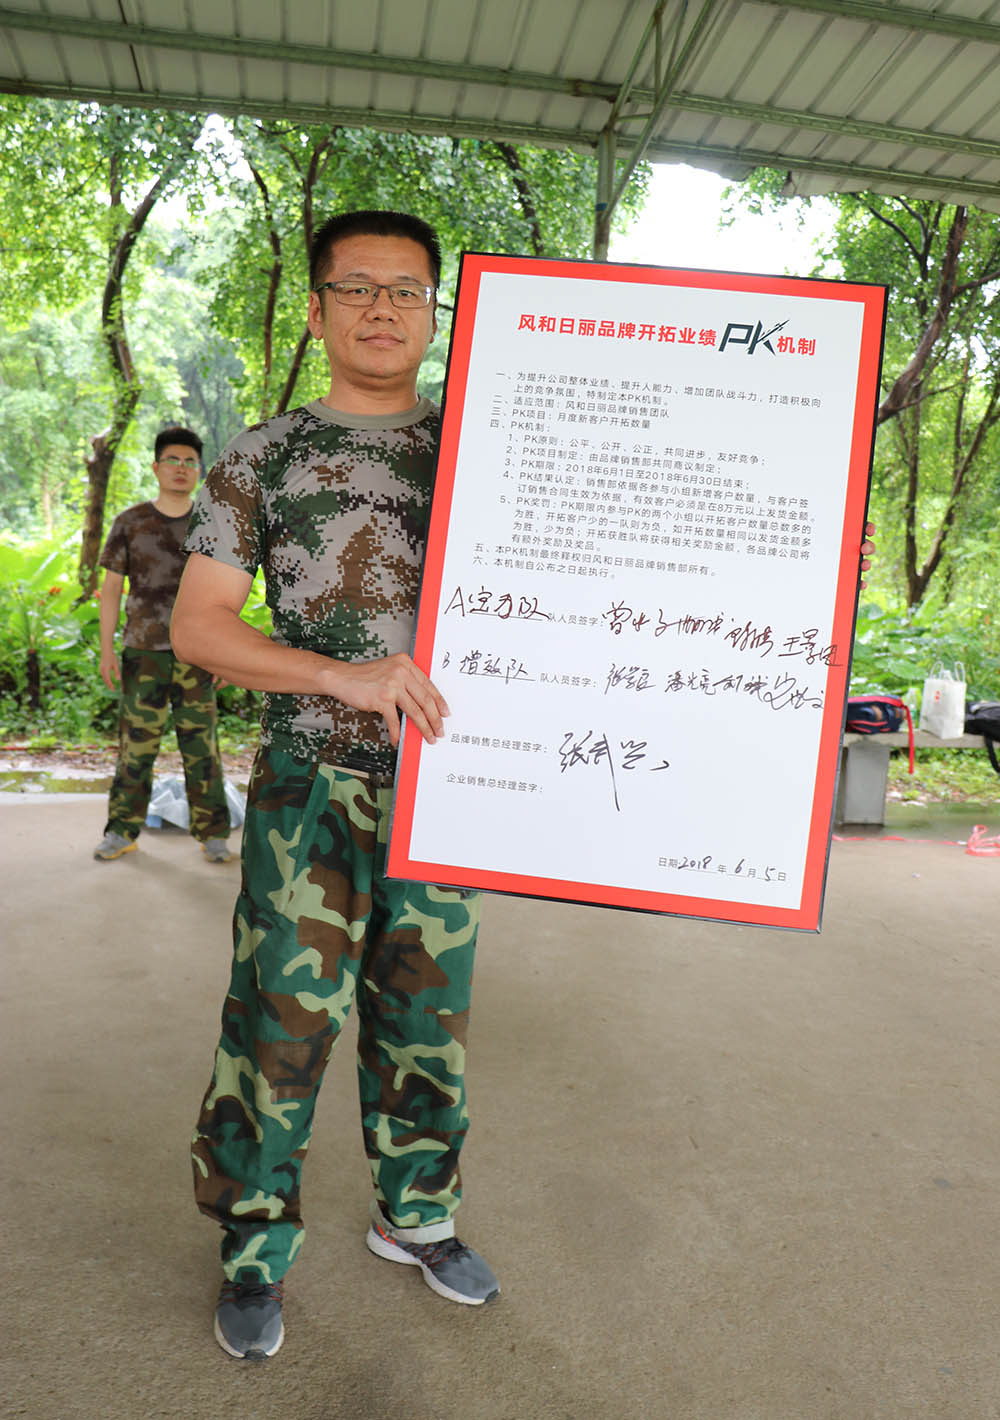 风和日丽品牌开拓业绩PK机制
一、为提升公司整体业绩、提升人能力、增加团队战斗力，打造积极向
上的竞争氛围，特制定本PK机制。
二、适应范围：风和日丽品牌销售团队
三、PK项目：月度新客户开拓数量
四、PK机制：
1、PK原则：公平、公开、公正，共同进步，友好竞争；
2、PK项目制定：由品牌销售部共同商议制定；
3、PK期限：2018年6月1日至2018年6月30日结束；
4、PK结果认定：销售部依据各参与小组新增客户数量，与客户签
订销售合同生效为依据，有效客户必须是在8万元以上发货金额。
5、PK奖罚：PK期限内参与PK的两个小组以开拓客户数量总数多的
为胜，开拓客户少的一队则为负，如开拓数量相同以发货金额多
为胜，少为负；开拓获胜队将获得相关奖励金额，各品牌公司将
有额外奖励及奖品。
五、本PK机制最终释权归风和日丽品牌销售部所有。
六、本机制自公布之日起执行。
A 队 队人员签字：
B 增效队 队人员签字：
品牌销售总经理签字：张武
企业销售总经理签字：
日期2018年6月5日